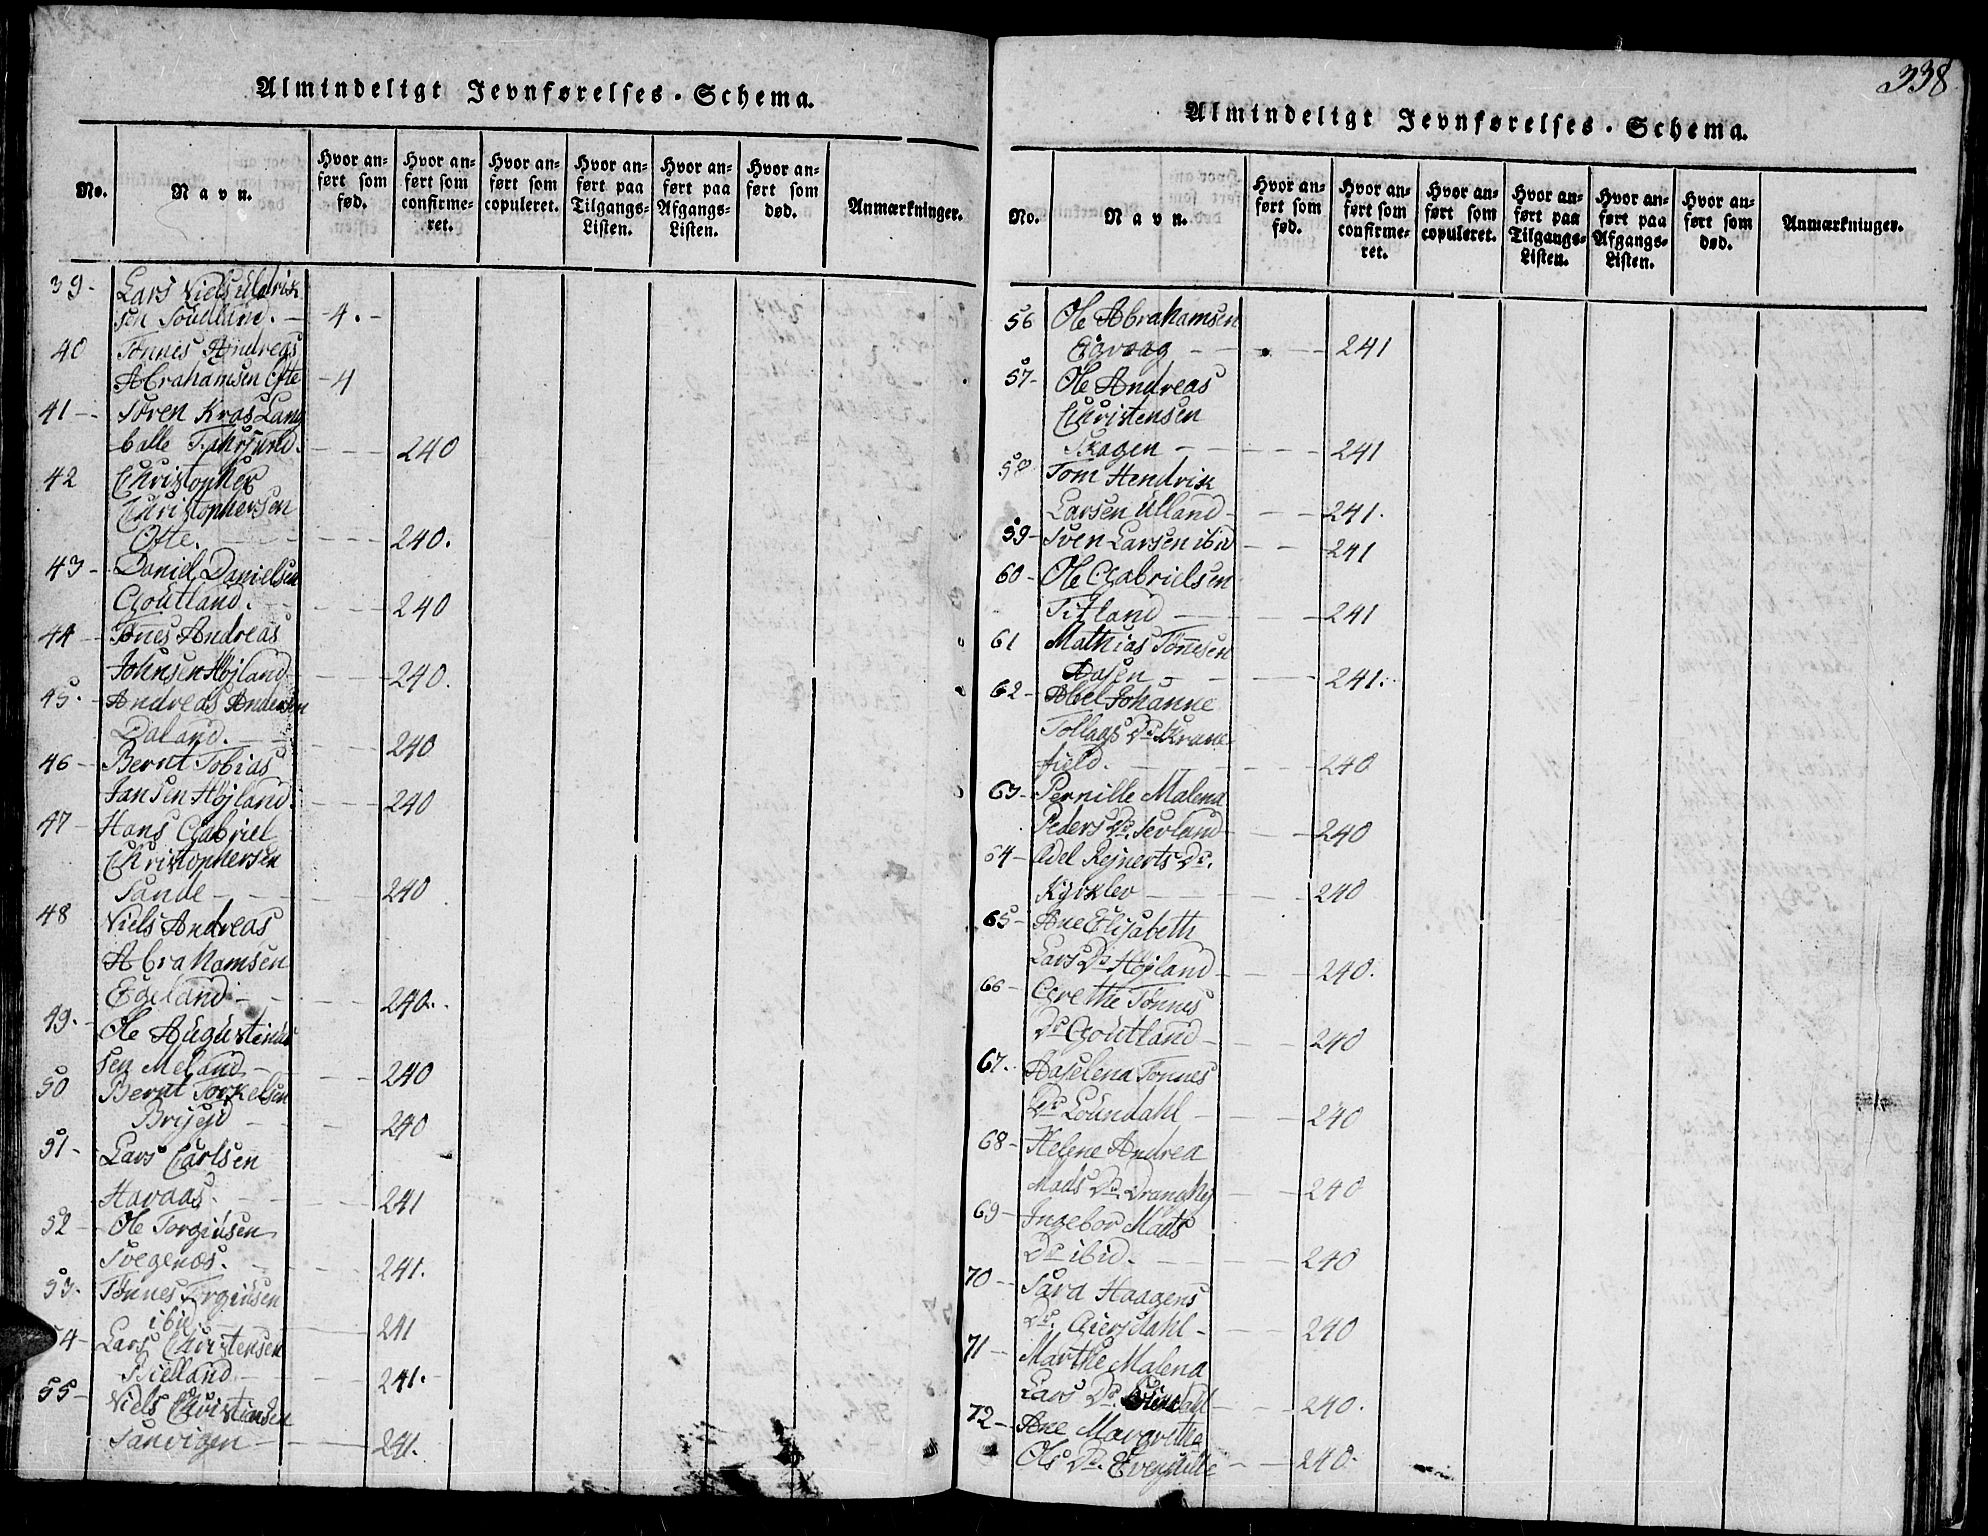 Almindeligt Jevnførelses-Schema.
No. Navn. Hvor anført som fød. Hvor anført som confirmeret. Hvor anført som copuleret. Hvor anført paa Tilgangs-Listen. Hvor anført paa Afgangs-Listen. Hvor anført som død. Anmærkninger.
39- Lars Niels Uldrik
sen Loudlum. - 4.-
40 Tønnes Andreas
Abrahamsen Ofte - 4
41- Søren Kras Lang
balle Fahrsund. 240
42 Christopher
Christophersen
Ofte. 240.
43- Daniel Danielsen
Goutland. 240
44- Tønes Andreas
Johnsen Højland 240.
45- Andreas Andersen
Daland. 240
46- Bernt Tobias
Jansen Højland. 240
47- Hans Gabriel
Christophersen
Sande 240
48 Niels Andreas
Abrahamsen
Egeland 240.
49.- Ole Augustinus
sen Meland 240
50 Bernt Torkelsen
Brisejd 240
51- Lars Carlsen
Havaas. 241
52- Ole Torgiusen
Svegenæs. 241.
53- Tønnes Torgiusen
ibid 241
54- Lars Christensen
Bielland 241.
55- Niels Christensen
Sanvigen 241.
338
Almindeligt Jevnførelses-Schema.
No. Navn. Hvor anført som fød. Hvor anført som confirmeret. Hvor anført som copuleret. Hvor anført paa Tilgangs-Listen. Hvor anført paa Afgangs-Listen. Hvor anført som død. Anmærkninger.
56 Ole Abrahamsen
Eigvaag 241
57- Ole Andreas
Christensen
Skagen 241
58 Tom Hendrik
Larsen Ulland 241.
59- Sven Larsen ibid 241
60- Ole Gabrielsen
Titland 241
61 Mathias Tønesen
Aasen 241.
62- Abel Johanne
Tollags Dr. Krane
field. 240
63- Pernille Malena
Peders Dr. Sevland 240
64- Adel Rejnerts Dr.
Kirklev 240
65- Ane Elisabeth
Lars Dr Højland 240.
66- Grethe Tønnes
Dr Goutland 240
67. Aaselena Tonnes
Dr Loundahl 240
68- Helene Andrea
Mads Dr. Dranghej 240
69- Ingebor Mads
Dr ibid. 240
70- Sara Haagens
Dr. Giersdahl 240
71- Marthe Malena
Lars Dr. 240.
72- Ane Margrethe
Ols Dr. 240.